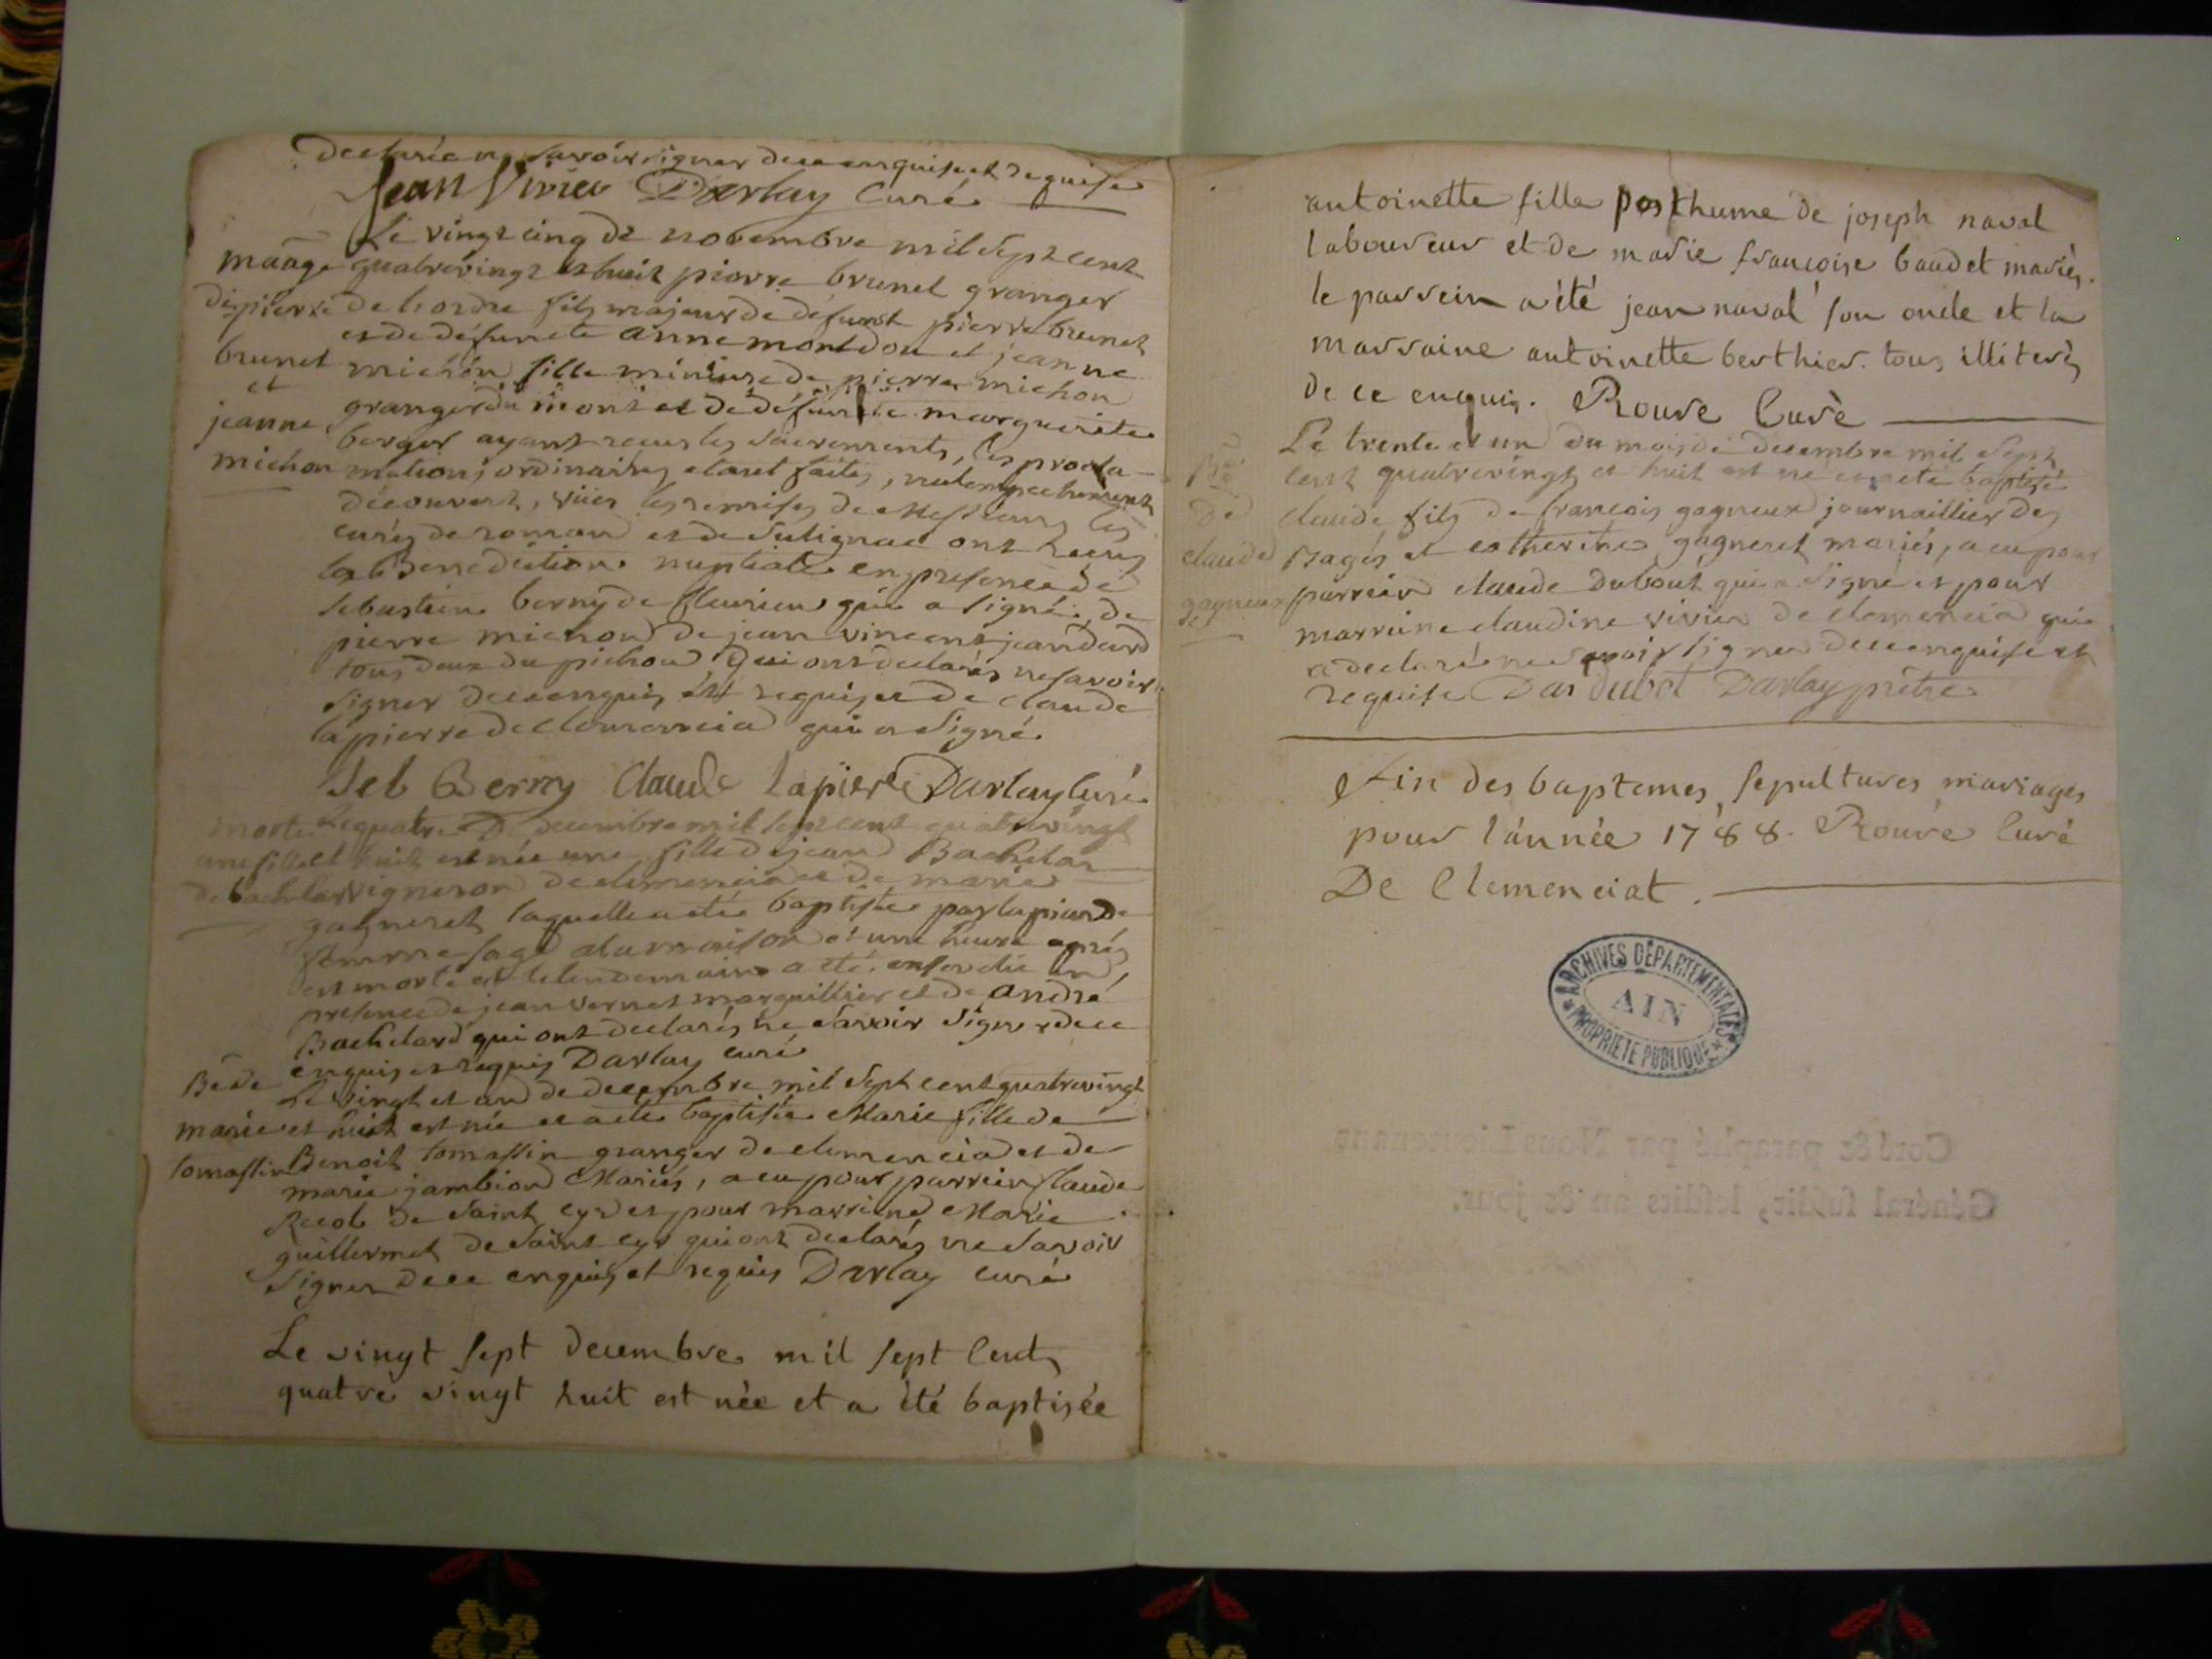 declarée ne savoir signer de ce enquise et requise
Jean Vivier Darlay Curé
Le vingt cinq de novembre mil sept cent
quatrevingt et huit pierre brunet granger
de fils majeur de défunt pierre brunet
et de défuncte anne et jeanne
michon fille mineure de pierre michon
granger du mont et de défuncte marguerite
berger ayant recus les sacrements, les procla-
mations ordinaires etant faites, nul empechement
découvert, vües les remises de Messieurs les
curés de roman et de Sulignac ont recus
la Benediction nuptiale en presence de
sebastien berny de fleurieu qui a signé, de
pierre michon de jean vincent jeandard
tous deux du pichou qui ont declarés ne savoir
signer de ce enquis et requis et de claude
lapierre de clemencia qui a signé.
mãage
de pierre
brunet
et
jeanne
michon
Seb Berny Claude Lapierre Darlay Curé
Le quatre De decembre mil sept cent quatrevingt
et huit est née une fille de jean Bachelar
vigneron de clemencia et de marie
gagneret laquelle a été baptisée par la
femme sage a la maison et une heure après
est morte et le lendemain a été ensevelie en
presence de jean vernet marguillier et de andré
Bachelard qui ont declarés ne savoir signer de ce
enquis et requis Darlay curé
morte
une fille
de bachelar
Le vingt et un de decembre mil sept cent quatrevingt
et huit est née et a été baptisée Marie fille de
Benoit tomassin granger de clemencia et de
marie jambion Mariés, a eu pour parrein Claude
de Saint cyr et pour marreine Marie
guillermet de Saint cyr qui ont declarés ne savoir
signer de ce enquis et requis Darlay curé
Bẽ de
marie
tomassin
Le vingt sept decembre mil sept Cent
quatre vingt huit est née et a été baptisée
antoinette fille posthume de joseph naval
laboureur et de marie françoise baudet mariés.
le parrein a été jean naval son oncle et la
marraine antoinette berthier. tous illiterés
de ce enquis. Rouve Curé
Le trente et un du mois de decembre mil sept
cent quatrevingt et huit est né et a été baptisé
claude fils de francois gagneux journaillier des
Bages et catherine gagneret mariés, a eu pour
parrein claude Dubout qui a signé et pour
marreine claudine vivier de clemencia qui
a declaré ne savoir signer de ce enquise et
requise Dubot Darlay prêtre
Bẽ
de
claude
gagneux
Fin des baptemes, sepultures mariages
pour l'année 1788. Rouve Curé
De Clemenciat.
ARCHIVES DÉPARTEMENTALES
AIN
PROPRIÉTÉ PUBLIQUE
Coté & paraphé par Nous Lieutenant
Général susdit, lesdits an & jour.